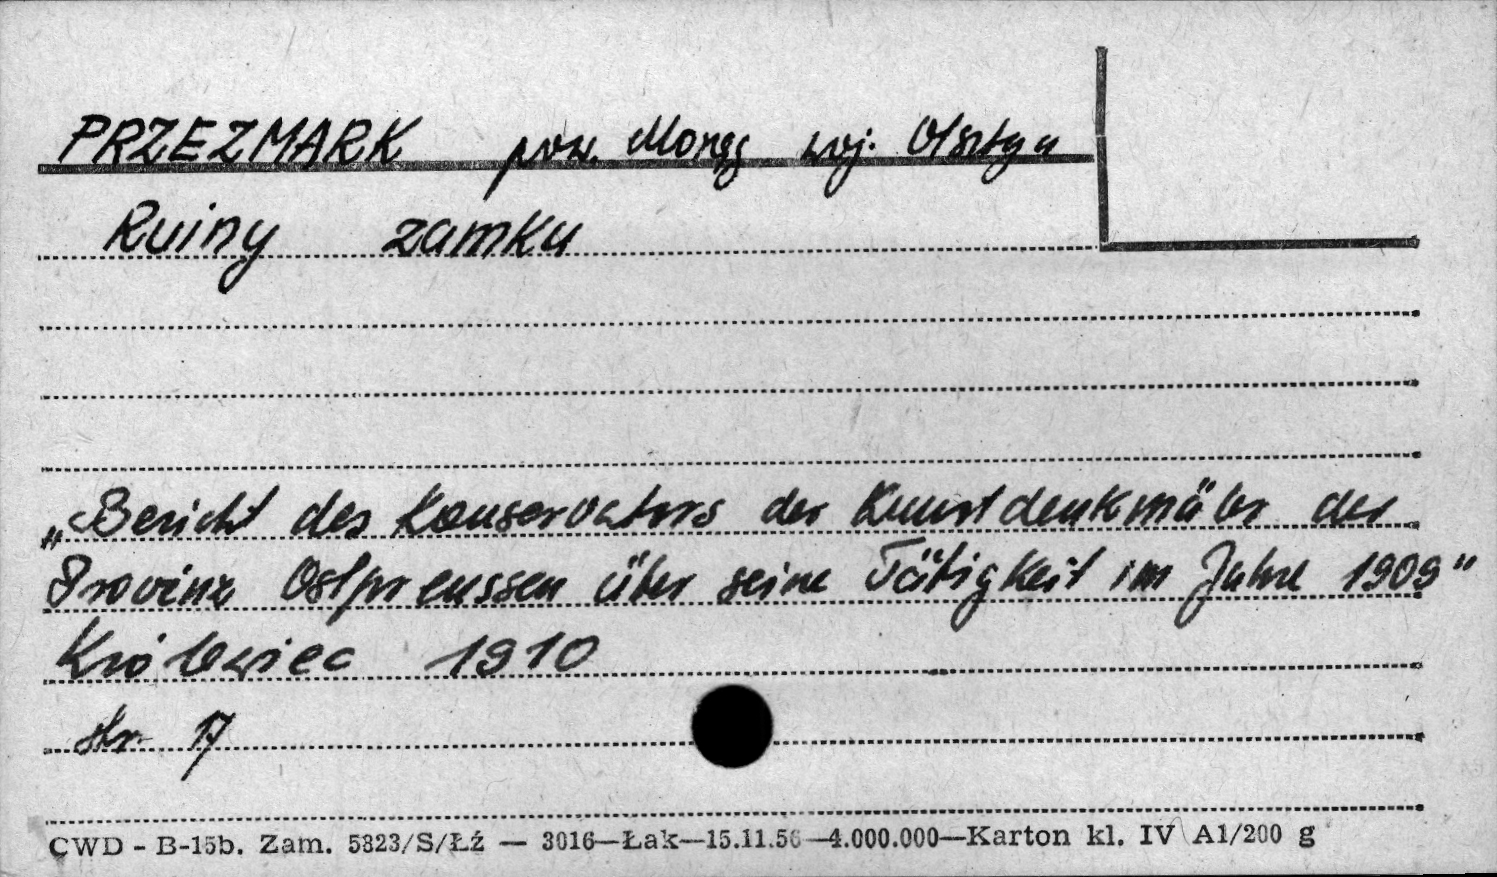 PRZEZMARK pow. Morąg woj. Olsztyn
Ruiny zamku
„Bericht des Konservators der Kunstdenkmäler der
Provinz Ostpreussen über seine Tätigkeit im Jahre 1909"
Królewiec 1910
str. 17
CWD - B-15b. Zam. 5323/S/Łź — 3016—Łak—15.11.56—4.000.000—Karton kl. IV A1/200 g